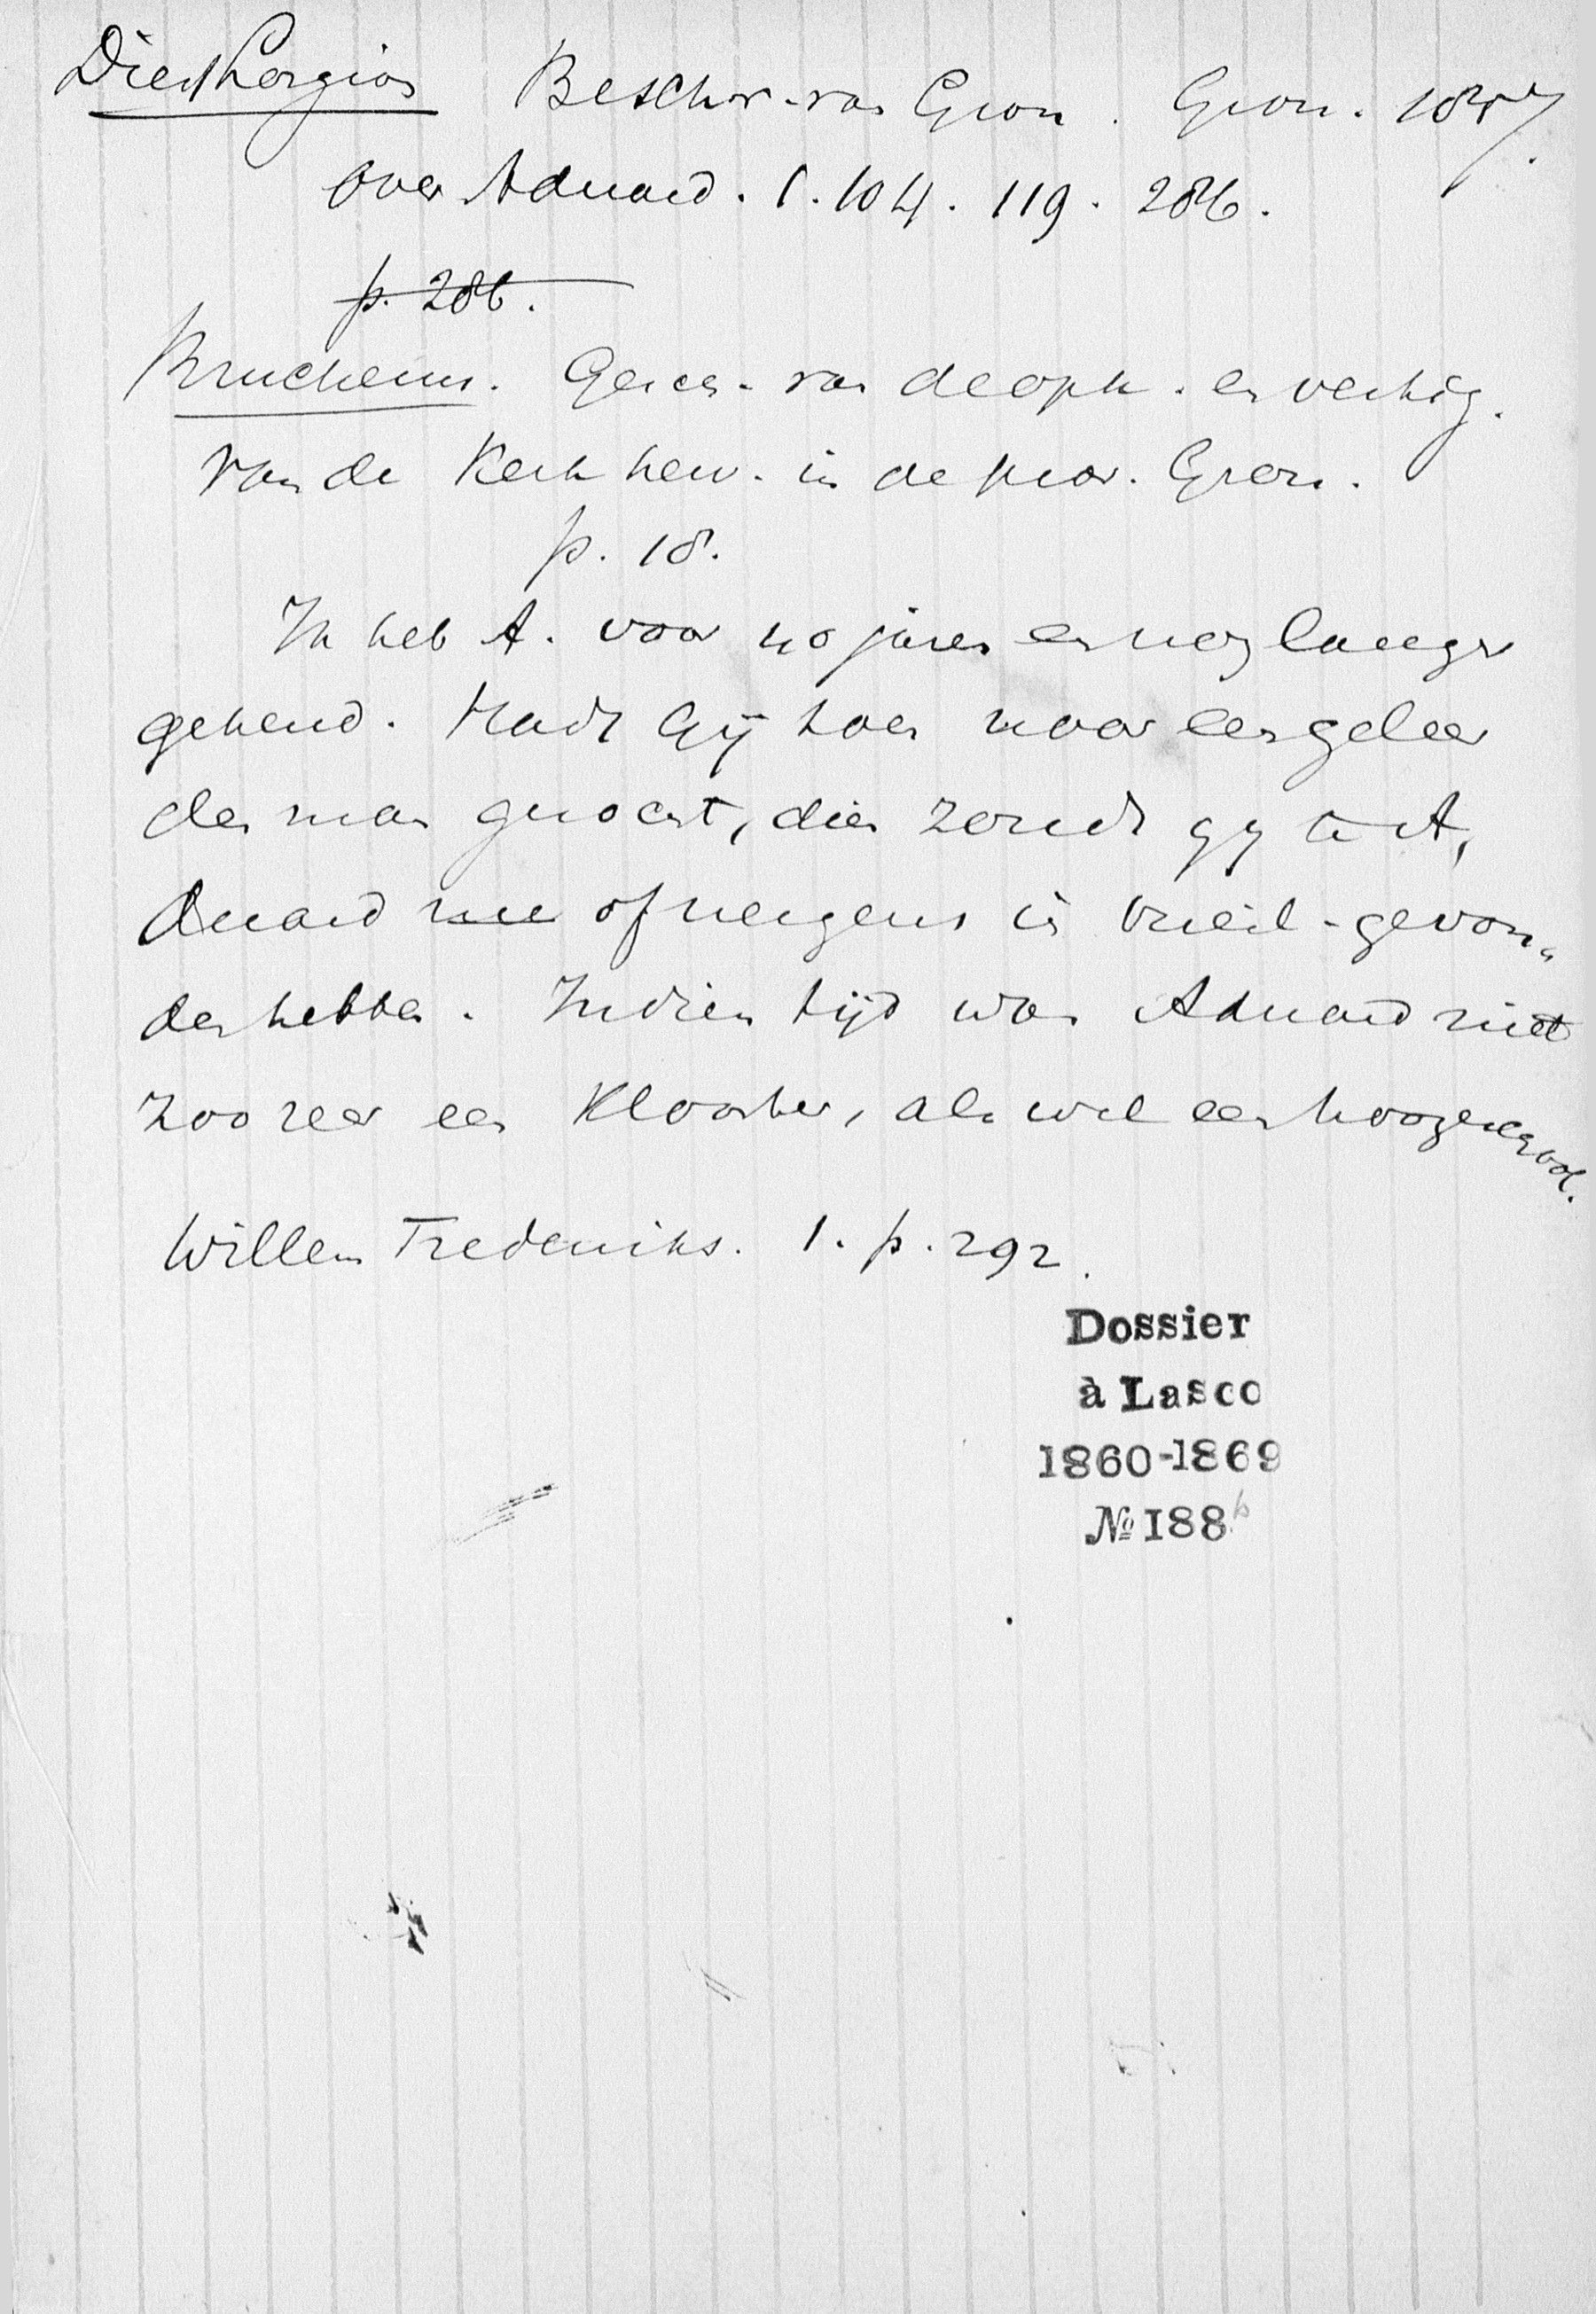 Diest Lorgion Beschr. van Gron. Gron. 1857.
Over Aduard. I. 104. 119. 286.
p. 286.
Brucherus. Gesch. van de opk. en vestig.
van de Kerkherv. in de prov. Gron.
p. 18.
Ik heb A. voor 40 jaren en nog langer
gekend. Hadt Gij toen naar een geleer
den man gezocht, dien zoudt gij te A,
duard of nergens in Vriesl. gevon„
den hebben. In dien tijd was Aduard niet
zoo zeer een Klooster, als wel een hoogeschool.
Willem Frederiks. 1. p. 292.
Dossier
à Lasco
1860-1869
№ 188b